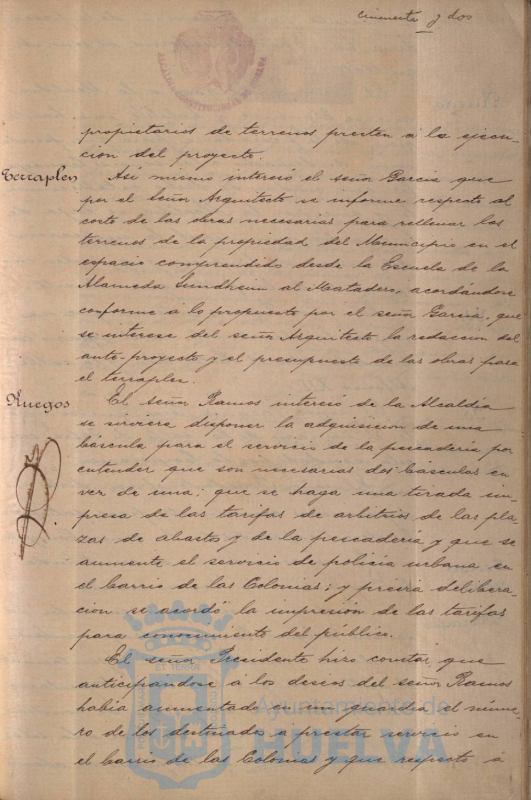 cincuenta y dos
ALCALDIA CONSTITUCIONAL DE HUELVA
propietarios de terrenos presten á la ejecu-
cion del proyecto.
Terraplen
Asi mismo interesó el señor Garcia que
por el Señor Arquitecto se informe respecto al
coste de las obras necesarias para rellenar los
terrenos de la propiedad del Municipio en el
espacio comprendido desde la Escuela de la
Alameda Sundheim al Matadero, acordándose
conforme á lo propuesto por el señor Garcia, que
se interese del señor Arquitecto la redaccion del
ante-proyecto y el presupuesto de las obras para
el terraplen.
Ruegos
El señor Ramos interesó de la Alcaldía
se sirviera disponer la adquisicion de una
báscula para el servicio de la pescadería por
entender que son necesarias dos básculas en
vez de una; que se haga una tirada im-
presa de las tarifas de arbitrios de las pla-
zas de abastos y de la pescaderia y que se
aumente el servicio de policía urbana en
el barrio de las Colonias; y previa delibera-
cion se acordó la impresión de las tarifas
para conocimiento del público.
El señor Presidente hizo constar que
anticipandose á los deseos del señor Ramos
habia aumentado en un guardia el núme-
ro de los destinados a prestar servicio en
el barrio de las Colonias y que respecto á
Ayuntamiento de
HUELVA